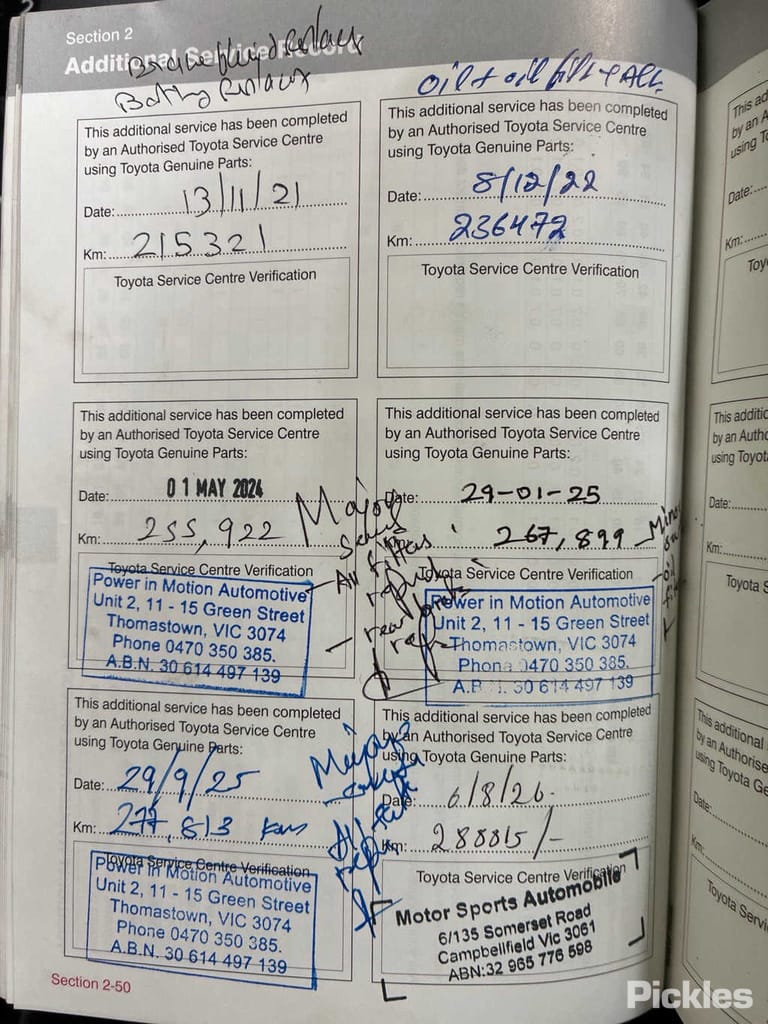 Section 2
Additional Service Record
Brake fluid Replace
Battery Replace
This additional service has been completed
by an Authorised Toyota Service Centre
using Toyota Genuine Parts:
Date: 13/11/21
Km: 215321
Toyota Service Centre Verification
Oil + oil filt
This additional service has been completed
by an Authorised Toyota Service Centre
using Toyota Genuine Parts:
Date: 8/12/22
Km: 236472
Toyota Service Centre Verification
This additional service has been completed
by an Authorised Toyota Service Centre
using Toyota Genuine Parts:
Date: 01 MAY 2024
Km: 255,922
Toyota Service Centre Verification
Power in Motion Automotive
Unit 2, 11 - 15 Green Street
Thomastown, VIC 3074
Phone 0470 350 385.
A.B.N. 30 614 497 139
Major
- All
- rear
This additional service has been completed
by an Authorised Toyota Service Centre
using Toyota Genuine Parts:
Date: 29-01-25
Km: 267,899
Toyota Service Centre Verification
Power in Motion Automotive
Unit 2, 11 - 15 Green Street
Thomastown, VIC 3074
Phone 0470 350 385.
A.B.N. 30 614 497 139
- oil
This additional service has been completed
by an Authorised Toyota Service Centre
using Toyota Genuine Parts:
Date: 29/9/25
Km: 277,813 kms
Toyota Service Centre Verification
Power in Motion Automotive
Unit 2, 11 - 15 Green Street
Thomastown, VIC 3074
Phone 0470 350 385.
A.B.N. 30 614 497 139
Major
This additional service has been completed
by an Authorised Toyota Service Centre
using Toyota Genuine Parts:
Date: 6/8/26.
Km: 288815/-
Toyota Service Centre Verification
Motor Sports Automobile
6/135 Somerset Road
Campbellfield Vic 3061
ABN:32 965 776 598
Section 2-50
This ad
by an A
using To
Date:
Km:
Toy
This additio
by an Auth
using Toyot
Date:
Km:
Toyota S
This additional
by an Authorise
using Toyota Ge
Date:
Km:
Toyota Servi
Pickles